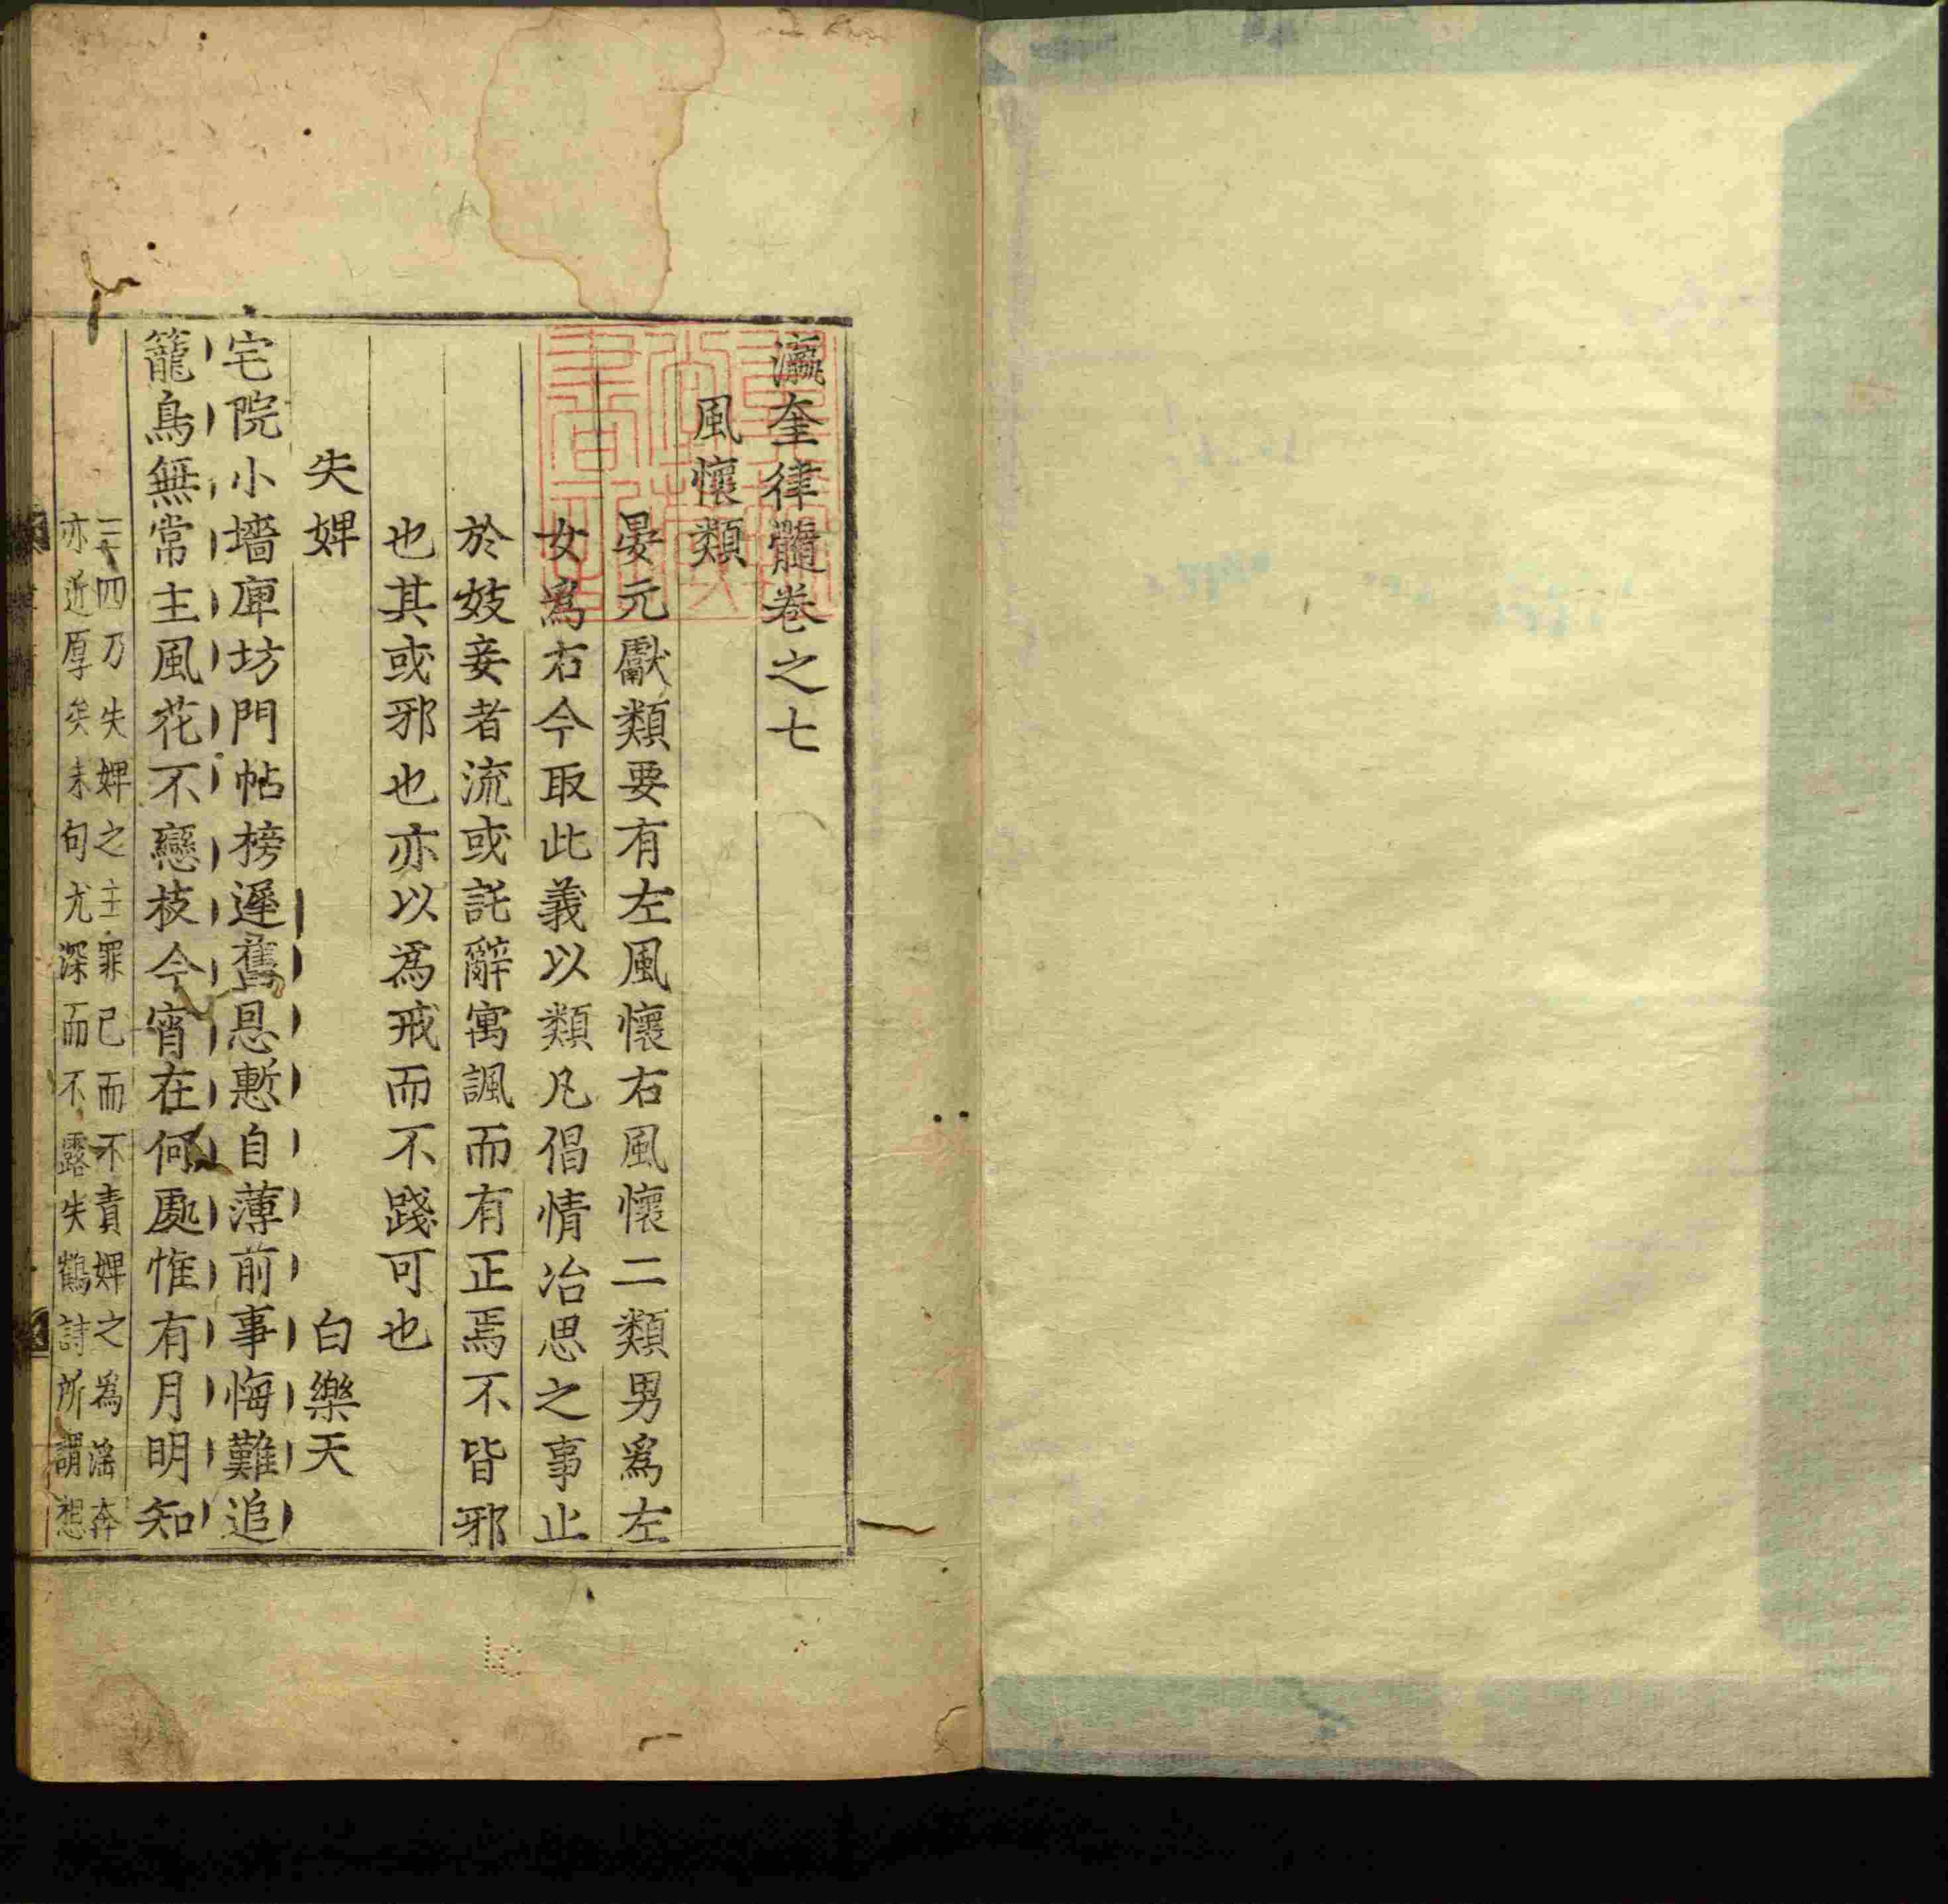 瀛奎律髓卷之七
風懷類
晏元獻類要有左風懷右風懷二類男爲左
女爲右今取此義以類凡倡情冶思之事止
於妓妾者流或託辭寓諷而有正焉不皆邪
也其或邪也亦以爲戒而不踐可也
失婢 白樂天
宅院小墻庳坊門帖榜遲舊恩慙自薄前事悔難追
籠鳥無常主風花不戀枝今宵在何處惟有月明知
三四乃失婢之主罪己而不責婢之爲滛奔
亦近厚矣末句尤深而不露失鶴詩所謂想